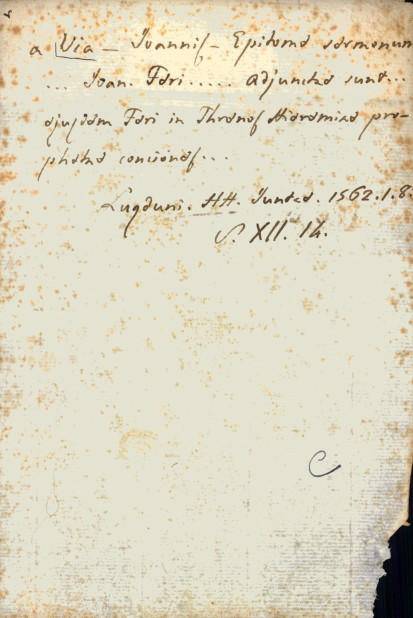 a Via - Joannis - Epitome sermonum
... Joan. Feri..... adjunctae sunt...
ejusdem Feri in Threnos Hieremiae pro-
phetae conciones...
Lugduni. HH. Juntae. 1562.1.8.
S. XII. 14.
C